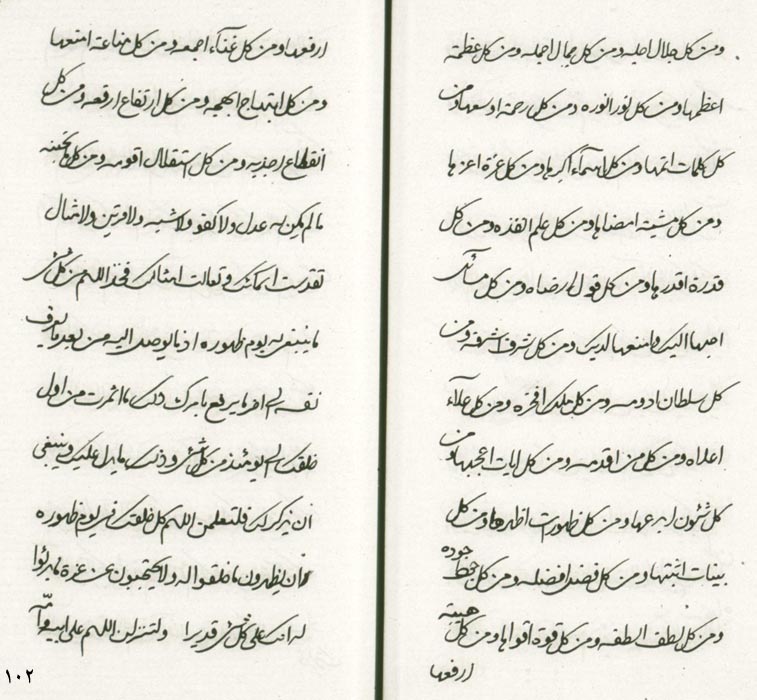 ومن كل جلال اجله ومن كل جمال اجمله ومن كل عظمة
اعظمها ومن كل نور انوره ومن كل رحمة اوسعها ومن
كل كلمات اتمها ومن كل اسماء اكبرها ومن كل عزة اعزها
ومن كل مشية امضاها ومن كل علم انفذه ومن كل
قدرة اقدرها ومن كل قول ارضاه ومن كل مسائل
احبها اليك وامنعها لديك ومن كل شرف اشرفه ومن
كل سلطان ادومه ومن كل ملك افخره ومن كل علاء
اعلاه ومن كل من اقدمه ومن كل ايات اعجبها ومن
كل شئون ابدعها ومن كل ظهورات اظهرها ومن كل
بينات اثبتها ومن كل فضل افضله ومن كل جود
ومن كل لطف الطفه ومن كل قوة اقواها ومن كل هيبة
ارفعها
ارفعها ومن كل غناء اجمعه ومن كل مناعة امنعها
ومن كل ابتهاج ابهجه ومن كل ارتفاع ارفعه ومن كل
انقطاع اجذبه ومن كل استقلال اقومه ومن كل ما تحبنه
ما لم يكن له عدل ولا كفو ولا شبه ولا قرين ولا مثال
تقدست اسمائك وتعالت امثالك فخذ اللهم من كل شئ
ما ينبغي له يوم ظهوره اذ ما يوصل اليه من بعد ما يعرف
نفسه ذلك ما اثمرت من اول
خلقك الى يومئذ من كل شئ وذلك ما يدل عليك وينبغي
ان يذكر لك فلتعلمن اللهم كل خلقك في يوم ظهوره
ان يظهرون ما خلقوا له ولا يحتجبون عن عزة ما برئوا
له انك على كل شئ قديرا ولتنزلن اللهم على ابيه وامه
١٠٢